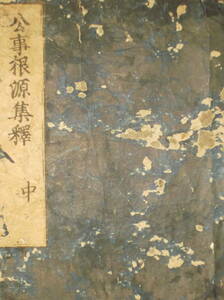 公事根源集釋
中